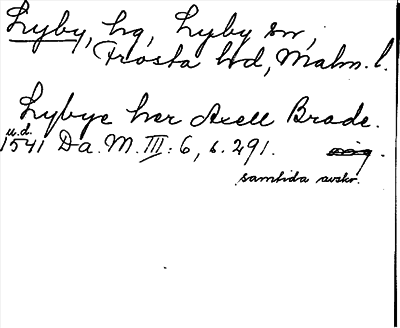 Lyby, hg, Lyby sn,
Frosta hd, Malm. l.
Lybye her Axell Brade.
u.d.
1541 Da. M. III: 6, s. 291. orig.
samtida avskr.